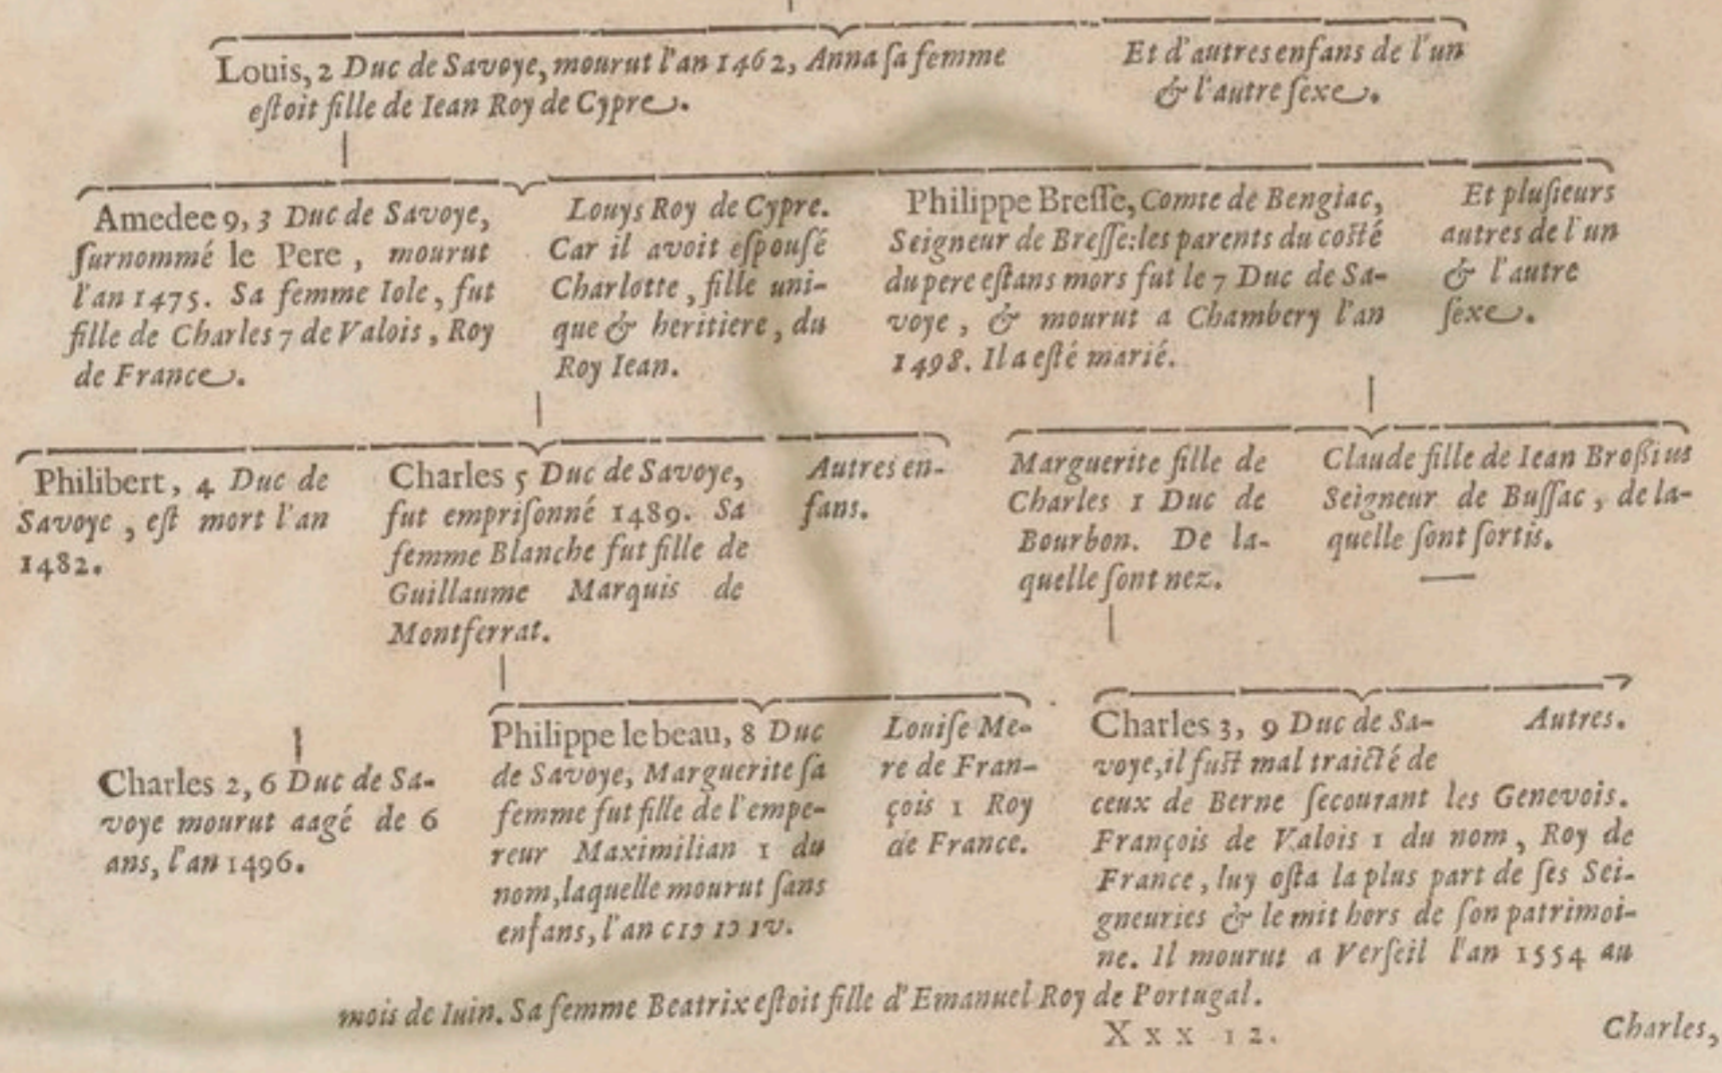 Louis, 2 Duc de Savoye, mourut l'an 1462, Anna ſa femme
eſtoit fille de Iean Roy de Cypre.
Et d'autres enfans de l'un
& l'autre ſexe.
Amedee 9, 3 Duc de Savoye,
ſurnommé le Pere, mourut
l'an 1475. Sa femme Iole, fut
fille de Charles 7 de Valois, Roy
de France.
Louys Roy de Cypre.
Car il avoit eſpouſé
Charlotte, fille uni-
que & heritiere, du
Roy Iean.
Philippe Breſſe, Comte de Bengiac,
Seigneur de Breſſe: les parents du coſté
du pere eſtans mors fut le 7 Duc de Sa-
voye, & mourut a Chambery l'an
1498. Il a eſté marié.
Et pluſieurs
autres de l'un
& l'autre
ſexe.
Philibert, 4 Duc de
Savoye, eſt mort l'an
1482.
Charles 5 Duc de Savoye,
fut empriſonné 1489. Sa
femme Blanche fut fille de
Guillaume Marquis de
Montferrat.
Autres en-
fans.
Marguerite fille de
Charles 1 Duc de
Bourbon. De la-
quelle ſont nez.
Claude fille de Iean Broſſius
Seigneur de Buſſac, de la-
quelle ſont ſortis.
Charles 2, 6 Duc de Sa-
voye mourut aagé de 6
ans, l'an 1496.
Philippe le beau, 8 Duc
de Savoye, Marguerite ſa
femme fut fille de l'empe-
reur Maximilian 1 du
nom, laquelle mourut ſans
enfans, l'an cIↃ IↃ IV.
Louiſe Me-
re de Fran-
çois 1 Roy
de France.
Charles 3, 9 Duc de Sa-
voye, il fuſt mal traicté de
ceux de Berne ſecourant les Genevois.
François de Valois 1 du nom, Roy de
France, luy oſta la plus part de ſes Sei-
gneuries & le mit hors de ſon patrimoi-
ne. Il mourut a Verſeil l'an 1554 au
Autres.
mois de Iuin. Sa femme Beatrix eſtoit fille d'Emanuel Roy de Portugal.
X x x 12.
Charles,